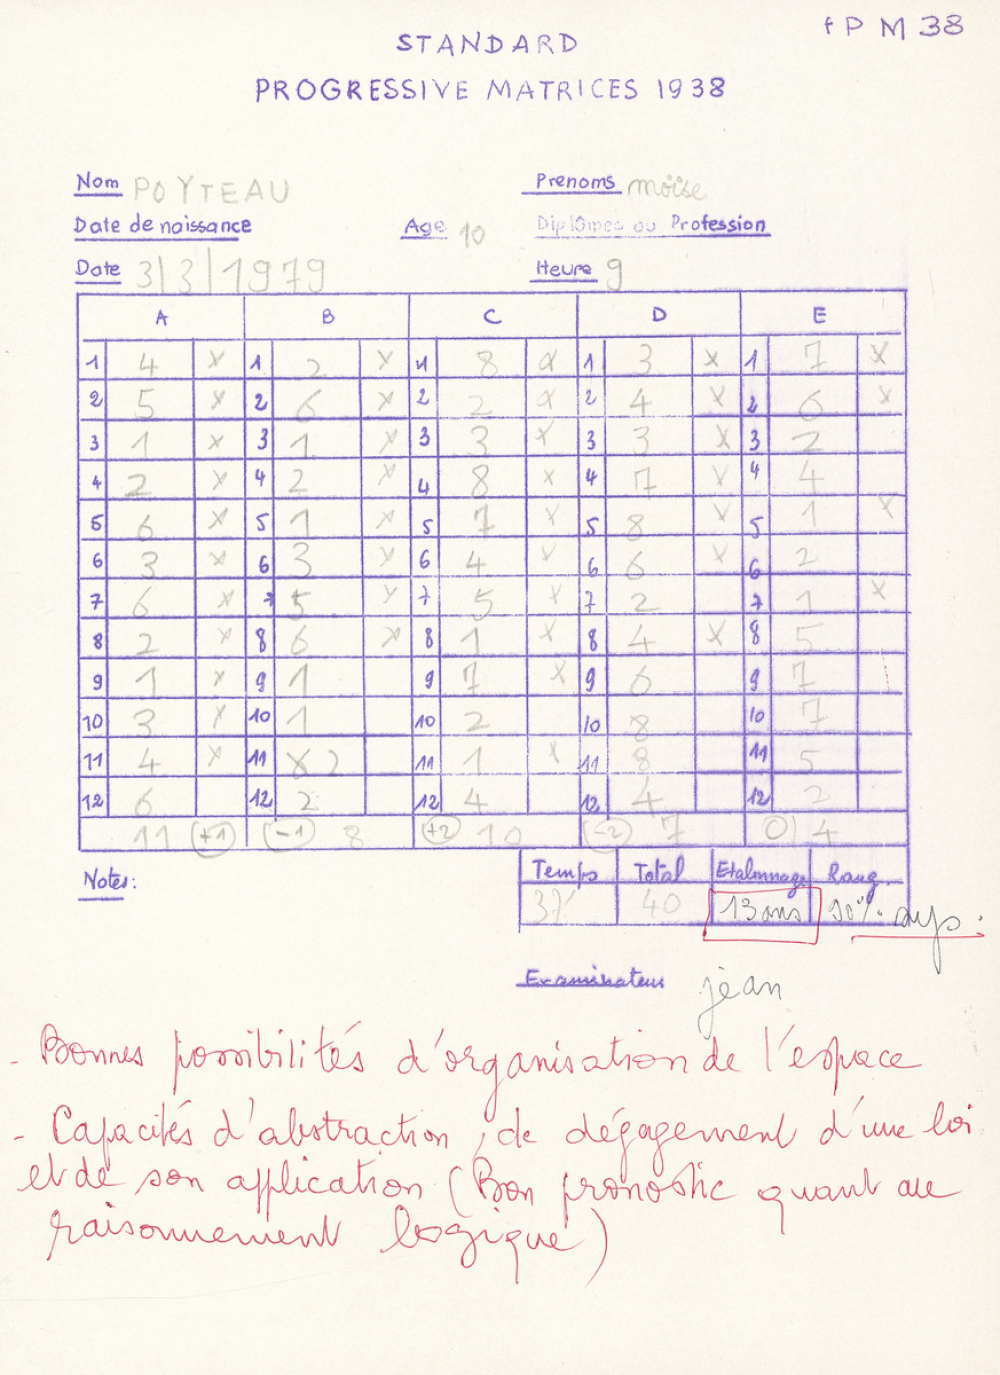 fPM 38
STANDARD
PROGRESSIVE MATRICES 1938
Nom POYTEAU Prenoms moïse
Date de naissance Age 10 Diplômes ou Profession
Date 3/3/1979 Heure 9
A B C D E
1 4 x 1 2 x 1 8 x 1 3 x 1 7 x
2 5 x 2 6 x 2 2 x 2 4 x 2 6 x
3 1 x 3 1 x 3 3 x 3 3 x 3 2
4 2 x 4 2 x 4 8 x 4 7 x 4 4
5 6 x 5 1 x 5 7 x 5 8 x 5 1 x
6 3 x 6 3 x 6 4 x 6 6 x 6 2
7 6 x 7 5 x 7 5 x 7 2 7 1 x
8 2 x 8 6 x 8 1 x 8 4 x 8 5
9 1 x 9 1 9 7 x 9 6 9 7
10 3 x 10 1 10 2 10 8 10 7
11 4 x 11 2 11 1 x 11 8 11 5
12 6 12 2 12 4 12 4 12 2
11 (+1) (-1) 8 (+2) 10 (-2) 7 (0) 4
Notes: Temps Total Etalonnage Rang
37' 40 13 ans 10% sup.
Examinateur jean
- Bonnes possibilités d'organisation de l'espace
- Capacités d'abstraction, de dégagement d'une loi
et de son application (Bon pronostic quant au
raisonnement logique)